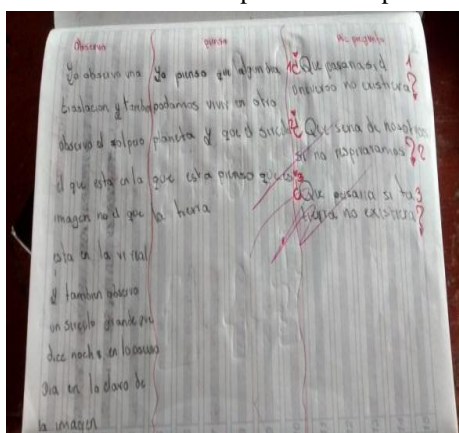 Observo
pienso
me pregunto
Yo observo una
traslacion y tambe
observo el sol pero
el que esta en la
imagen no el que
esta en la vi real
y tambien observo
un sircolo grande que
dice noche en lo oscuro
Dia en lo claro de
la imagen
Yo pienso que algun dia
podamos vivir en otro
planeta y que el sircolo
que esta pienso que es
la tierra
1 ¿Que pasaria si el 1
universo no existiera?
2 ¿Que seria de nosotros
si no respiraramos? 2
3 ¿Que pasaria si la 3
tierra no existiera?